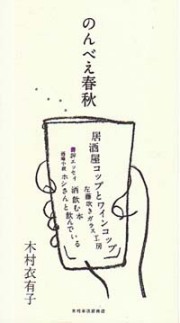 のんべえ春秋
居酒屋コップとワインコップ
左藤吹きガラス工房
書評エッセイ
酒飲む本
酒場小説
ホシさんと飲んでいる
木村衣有子